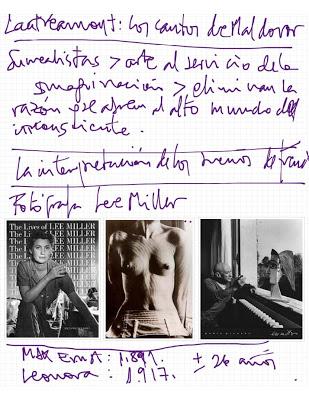 Lautréamont: Los cantos de Maldoror
Surrealistas > arte al servicio de la
imaginación > eliminan la
razón y se abren al alto mundo del
inconsciente.
La interpretación de los sueños de Freud
Fotógrafa Lee Miller
The Lives of LEE MILLER
The Lives of LEE MILLER
The Lives of LEE MILLER
Max Ernst: 1.891. ± 26 años
Leonora: 1.917.